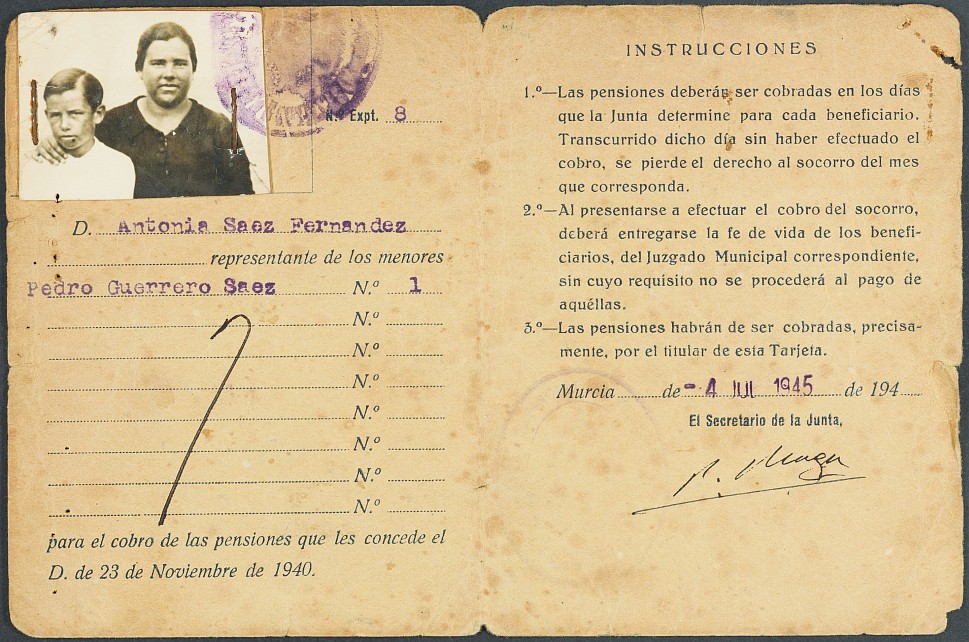 N.º Expt. 8
D. Antonia Saez Fernandez
representante de los menores
Pedro Guerrero Saez N.º 1
N.º
N.º
N.º
N.º
N.º
N.º
N.º
para el cobro de las pensiones que les concede el
D. de 23 de Noviembre de 1940.
INSTRUCCIONES
1.º—Las pensiones deberán ser cobradas en los días
que la Junta determine para cada beneficiario.
Transcurrido dicho día sin haber efectuado el
cobro, se pierde el derecho al socorro del mes
que corresponda.
2.º—Al presentarse a efectuar el cobro del socorro,
deberá entregarse la fe de vida de los benefi-
ciarios, del Juzgado Municipal correspondiente,
sin cuyo requisito no se procederá al pago de
aquéllas.
3.º—Las pensiones habrán de ser cobradas, precisa-
mente, por el titular de esta Tarjeta.
Murcia de - 4 JUL 1945 de 194
El Secretario de la Junta,